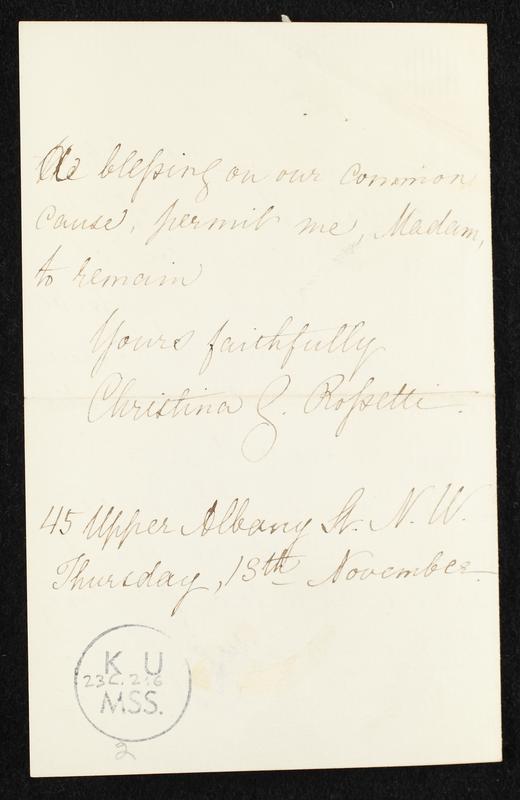 the blessing on our common
cause, permit me, Madam,
to remain
Yours faithfully
Christina G. Rossetti.
45 Upper Albany St. N. W.
Thursday, 13th November.
K U
23C. 2:6
MSS.
2